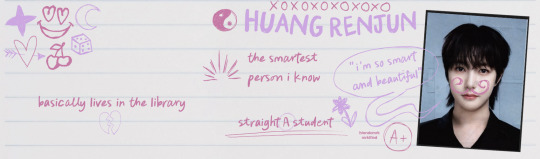 XOXOXOXOXOXO
HUANG RENJUN
the smartest
person i know
"i'm so smart
and beautiful"
basically lives in the library
straight A student
A+